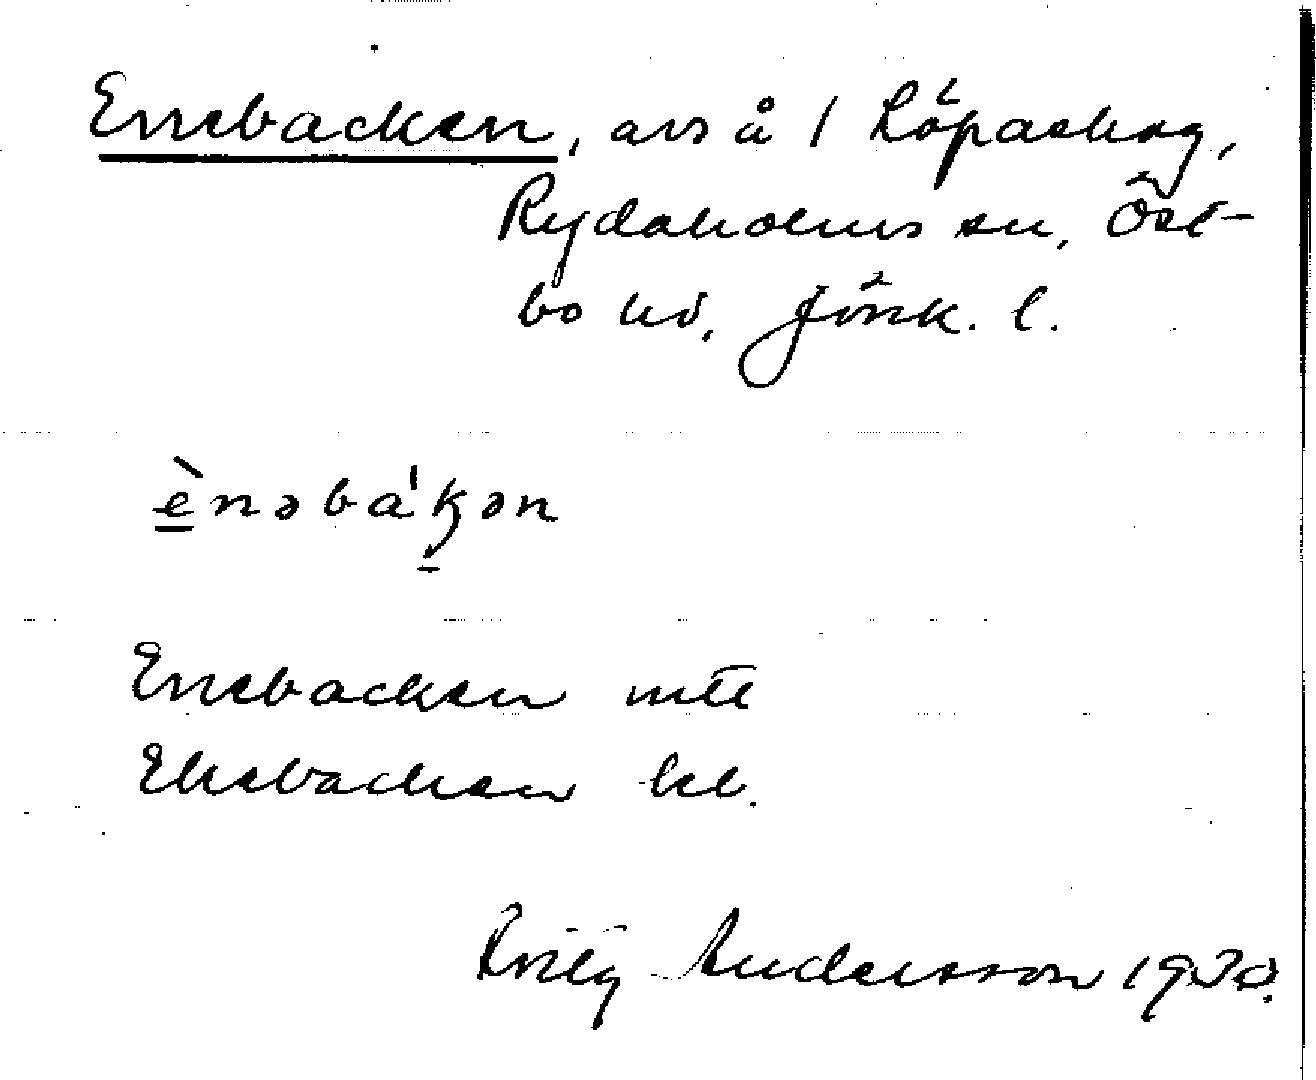 Enebacken, avs å 1 Köpaskog,
Rydaholms sn, Öst-
bo hd, Jönk. l.
ènəbaˈkən
Enebacken mtl
Ekebacken bel.
Andersson 1930.